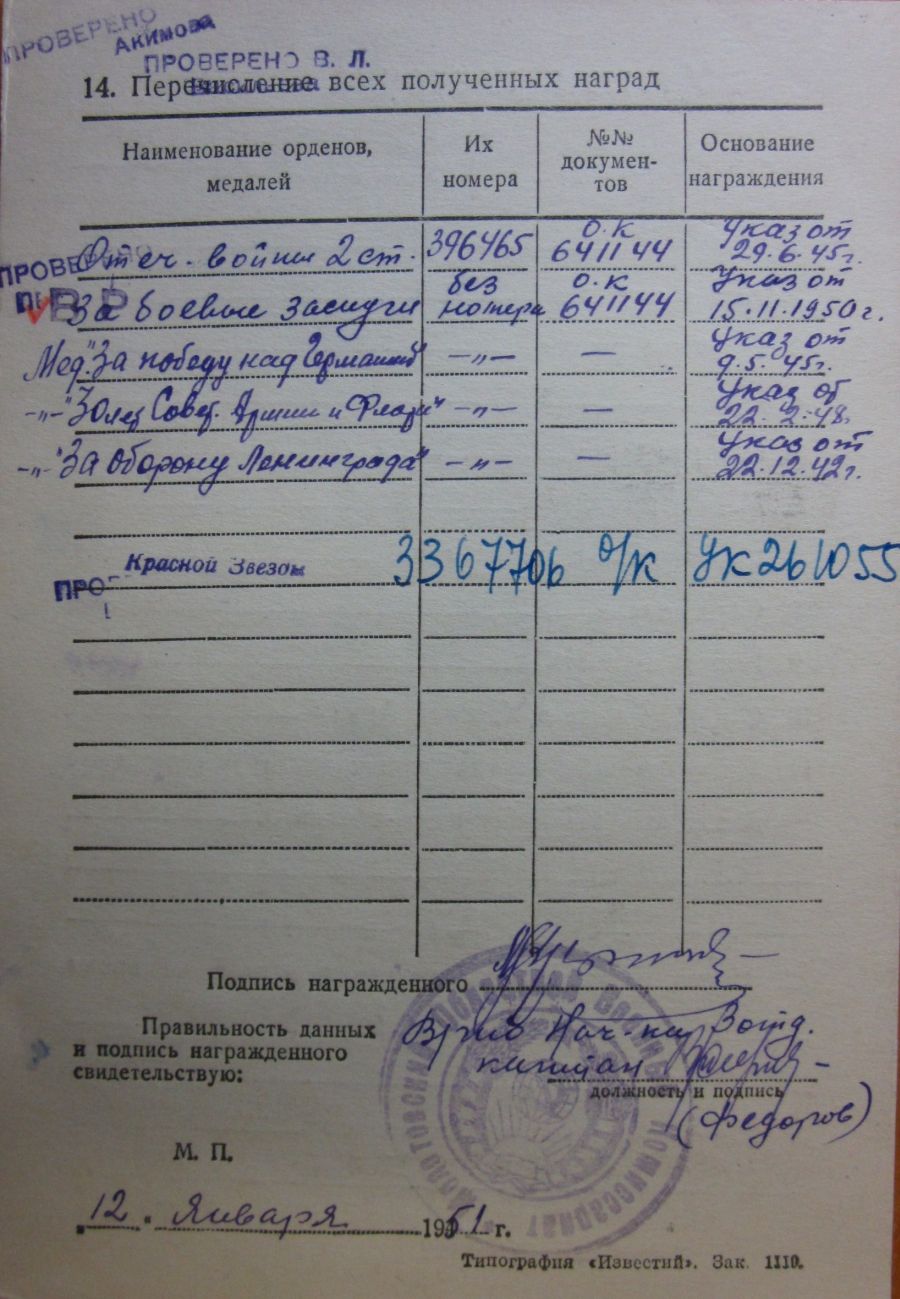 ПРОВЕРЕНО
Акимова
ПРОВЕРЕНО В. Л.
14. Перечисление всех полученных наград
Наименование орденов, медалей
Их номера
№№ документов
Основание награждения
Отеч. войны 2 ст. 396465 О.К 641144 Указ от 29.6.45г.
ПРОВЕРЕНО
За боевые заслуги без номера О.К 641144 Указ от 15.11.1950 г.
Мед. "За победу над Германией" —„— — Указ от 9.5.45г.
—„— "30 лет Совет. Армии и Флота" —„— — Указ от 22.2.48.
—„— "За оборону Ленинграда" —„— — Указ от 22.12.42г.
Красной Звезды 3367706 о/к УК261055
ПРО
Подпись награжденного
Правильность данных
и подпись награжденного
свидетельствую:
Врио Нач-ка 3 отд.
капитан
должность и подпись
(Федоров)
М. П.
"12" Января 1951 г.
Типография «Известий». Зак. 1110.